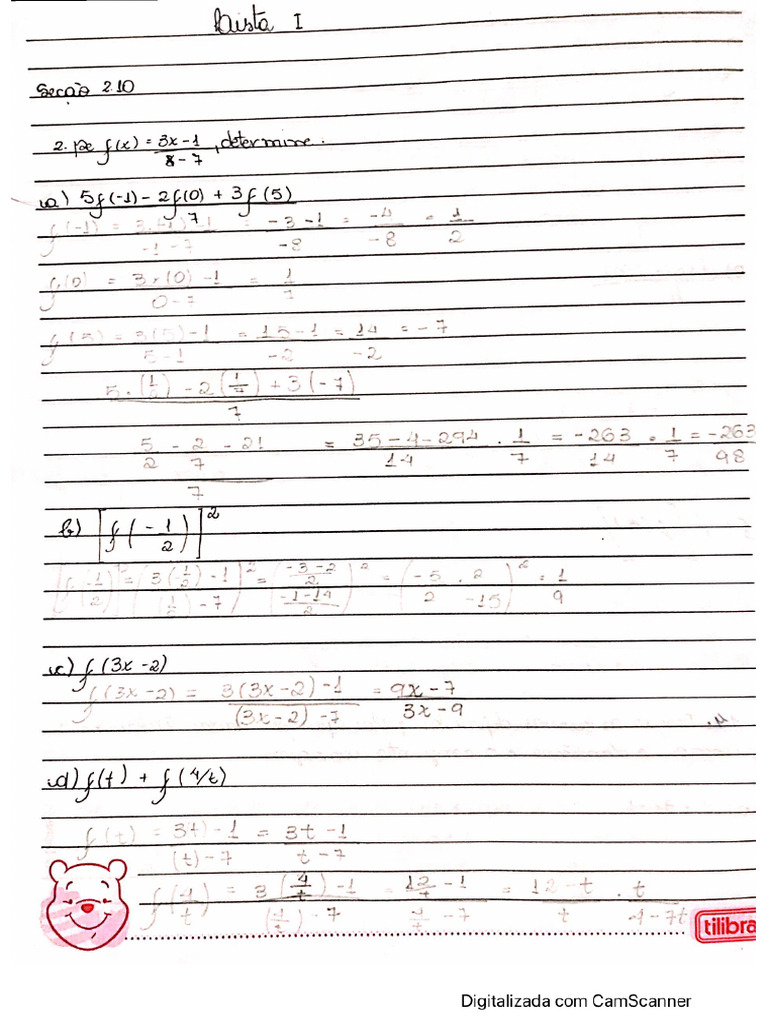 Lista I
Secção 2.10
2. se f(x) = 3x-1 / x-7, determine.
a) 5f(-1) - 2f(0) + 3f(5) / 7
f(-1) = 3.(-1)-1 / -1-7 = -3-1 / -8 = -4 / -8 = 1/2
f(0) = 3x(0)-1 / 0-7 = 1/7
f(5) = 3(5)-1 / 5-1 = 15-1 / -2 = 14 / -2 = -7
5.(1/2) - 2(1/7) + 3(-7) / 7
5/2 - 2/7 - 21 / 7 = 35-4-294 / 14 . 1/7 = -263/14 . 1/7 = -263/98
b) [f(-1/2)]²
[f(-1/2)]² = (3(-1/2)-1 / (1/2)-7)² = (-3-2/2 / -1-14/2)² = (-5/2 . 2/-15)² = 1/9
c) f(3x-2)
f(3x-2) = 3(3x-2)-1 / (3x-2)-7 = 9x-7 / 3x-9
d) f(t) + f(4/t)
f(t) = 3t)-1 / (t)-7 = 3t-1 / t-7
f(4/t) = 3(4/t)-1 / (4/t)-7 = 12/t-1 / 4/t-7 = 12-t / t . t / 4-7t
tilibra
Digitalizada com CamScanner